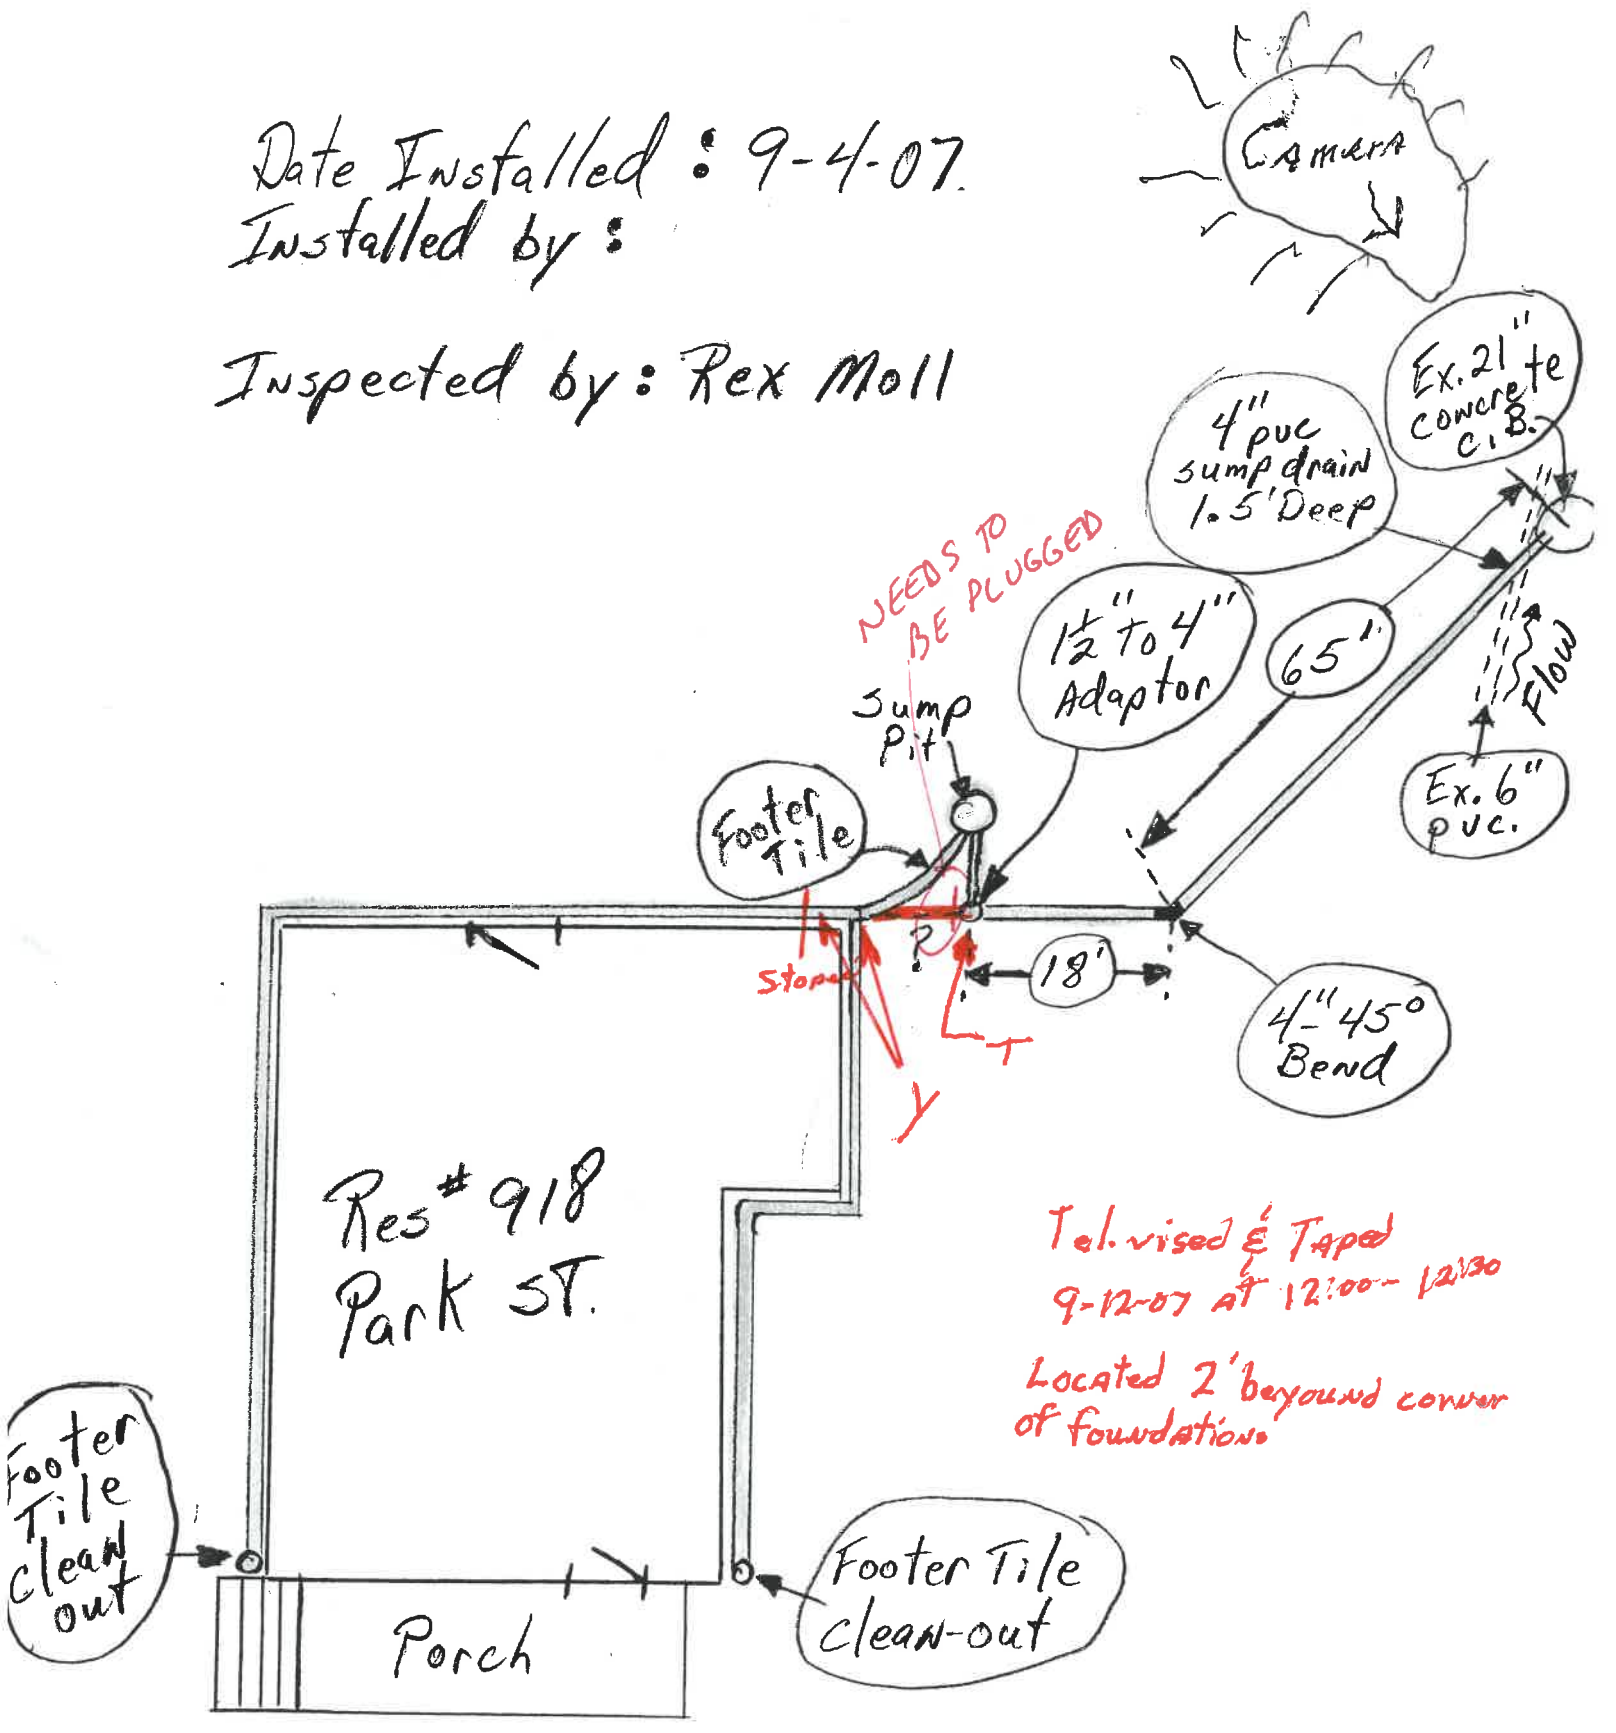 Date Installed : 9-4-07.
Installed by :
Inspected by : Rex Moll
Camera
Ex. 21"
concrete
C.B.
4"
pvc
sump drain
1.5' Deep
NEEDS TO
BE PLUGGED
1 1/2" To 4"
Adaptor
65'
Flow
Sump
Pit
Ex. 6"
pvc.
Footer
Tile
?
Stoped
18'
T
4"-45°
Bend
Y
Res # 918
Park ST.
Tel.vised & Taped
9-12-07 at 12:00 - 12:30
Located 2' beyound corner
of foundation.
Footer
Tile
clean
out
Footer Tile
clean-out
Porch